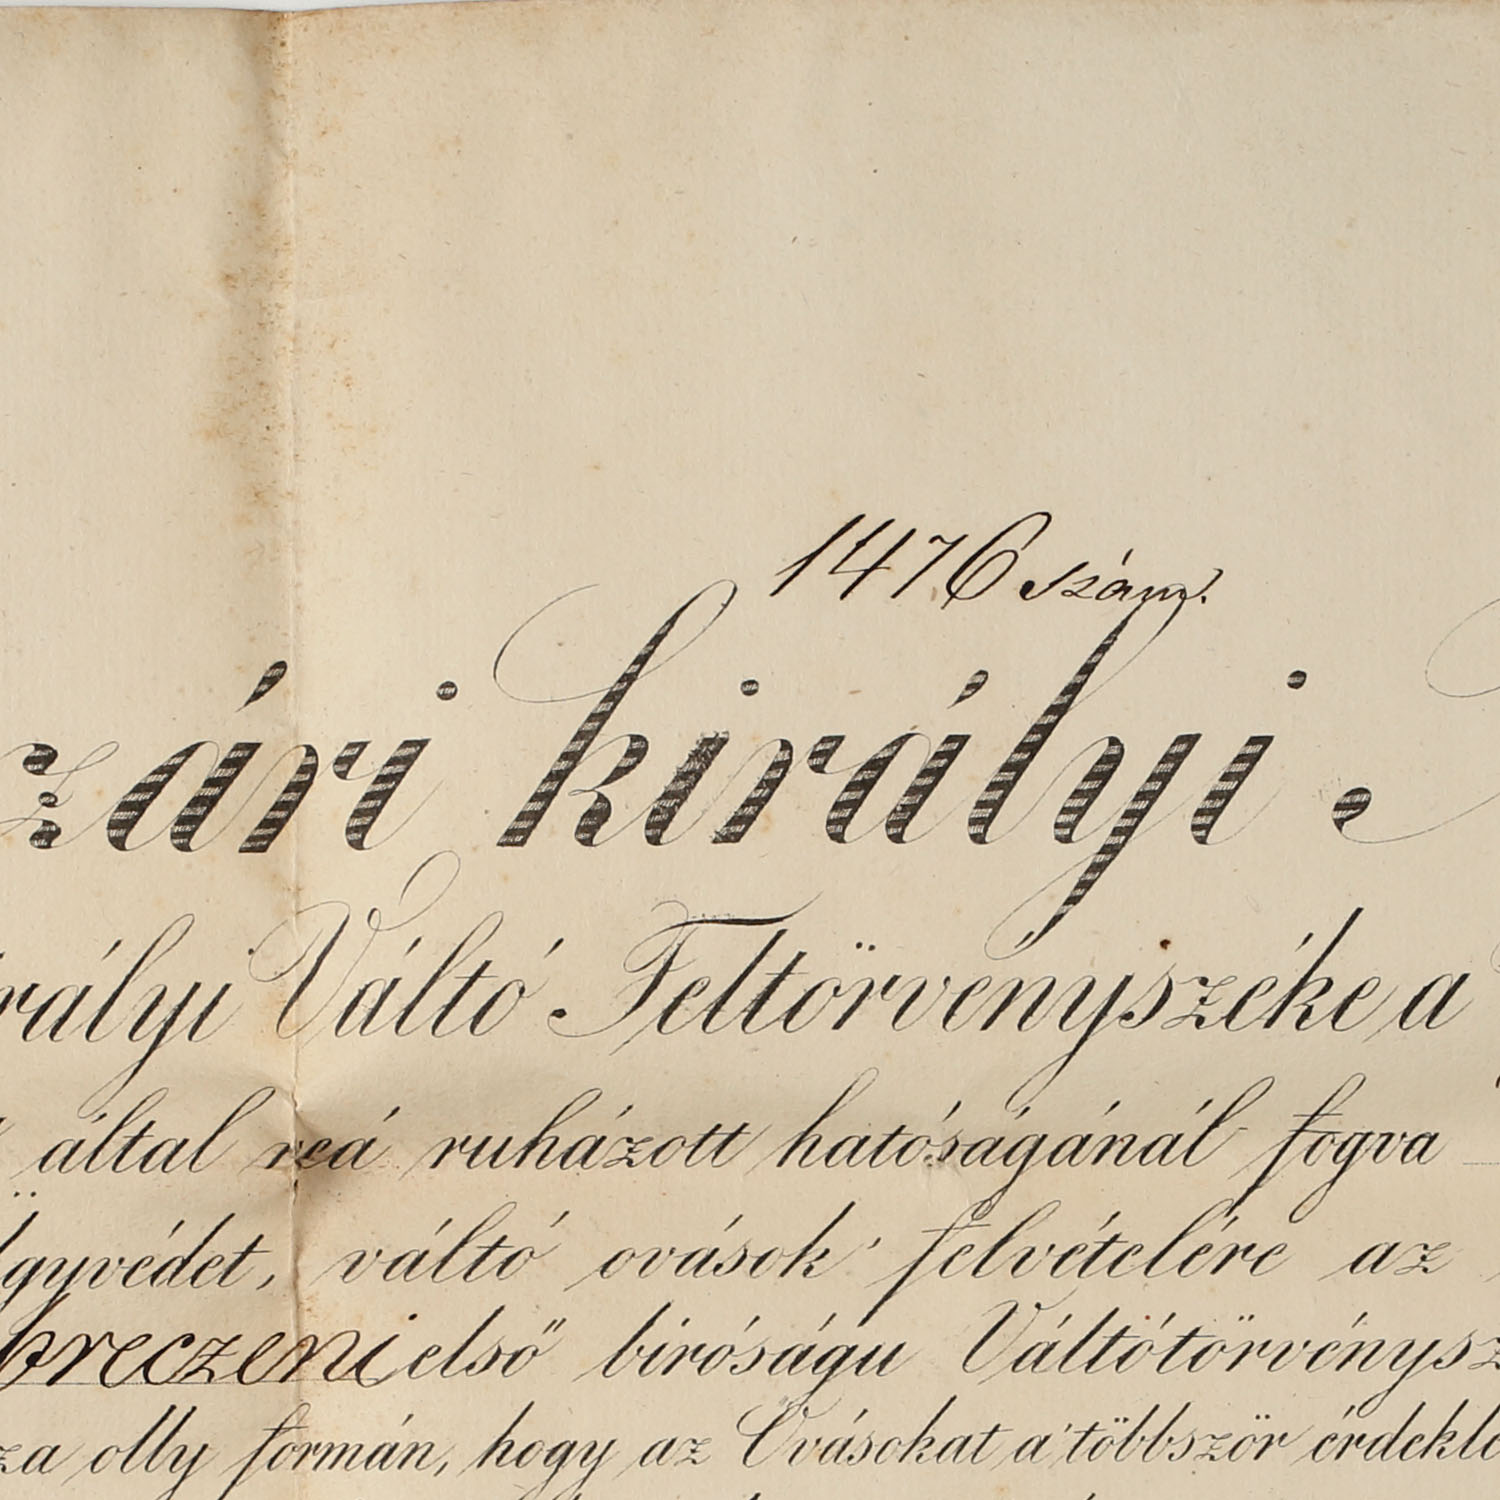 1476 szám.
zári királyi
rályi Váltó Feltörvényszéke a
által reá ruházott hatóságánál fogva
gyvédet, váltó ovások' felvételére az
breczeni első biróságu Váltótörvénysz
za olly formán, hogy az Óvásokat a' többször érdekl